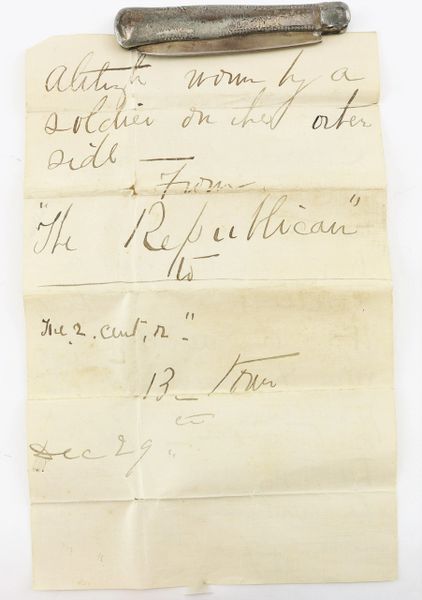 although worn by a
soldier on the other
side
From
"The Republican"
to
The 2. cent,
13 Town
Dec 29